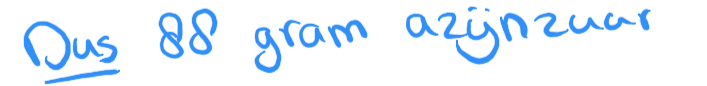 Dus 88 gram azijnzuur